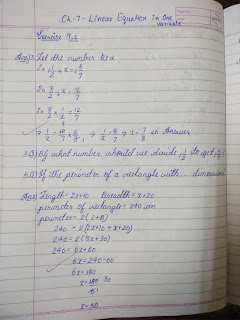 Ch-7- Linear Equation in One
variable.
Exercise 7.2
Ans) 3. Let the number be x
1/2 ÷ x = 1 5/7
3/2 ÷ x = 12/7
3/2 × 1/x = 12/7
⇒ 1/x = 12/7 × 2/3 ⇒ 1/x = 8/7 ⇒ x = 7/8 is Answer
3.Q) By what number should we divide 1 1/2 to get
5.Q) If the perimeter of a rectangle with... dimensions
Ans) Length = 2x+10 Breadth = x+20
perimeter of rectangle = 240 cm
perimeter = 2(l+B)
240 = 2(2x+10+x+20)
240 = 2(3x+30)
240 = 6x+60
6x = 240-60
6x = 180
x = 180 30
6
x = 30